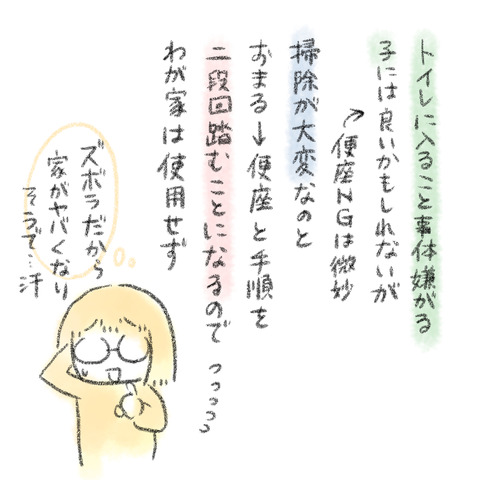 トイレに入ること事体嫌がる
子には良いかもしれないが
↗便座NGは微妙
掃除が大変なのと
おまる→便座と手順を
二段回踏むことになるので
わが家は使用せず
つつつつ
ズボラだから
家がヤバくなり
そうで…汗